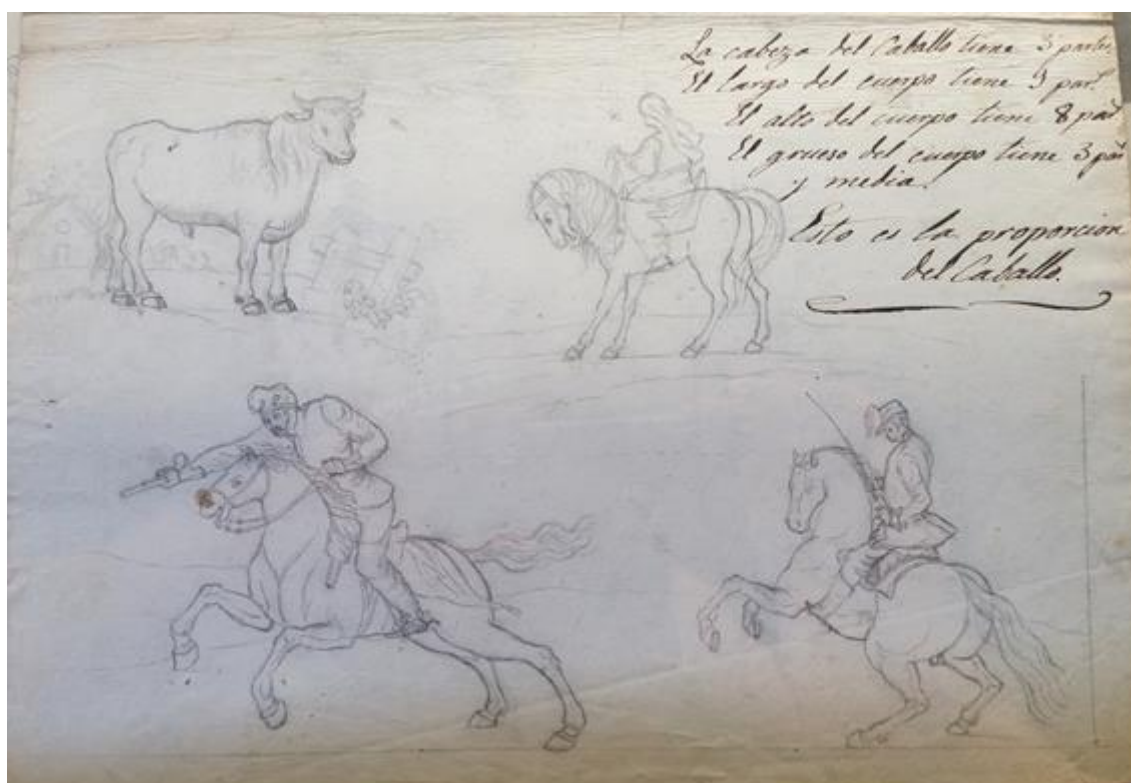 La cabeza del Caballo tiene 3 partes.
El largo del cuerpo tiene 9 part.s
El alto del cuerpo tiene 8 part
El grueso del cuerpo tiene 3 part
y media.
Esto es la proporcion
del Caballo.